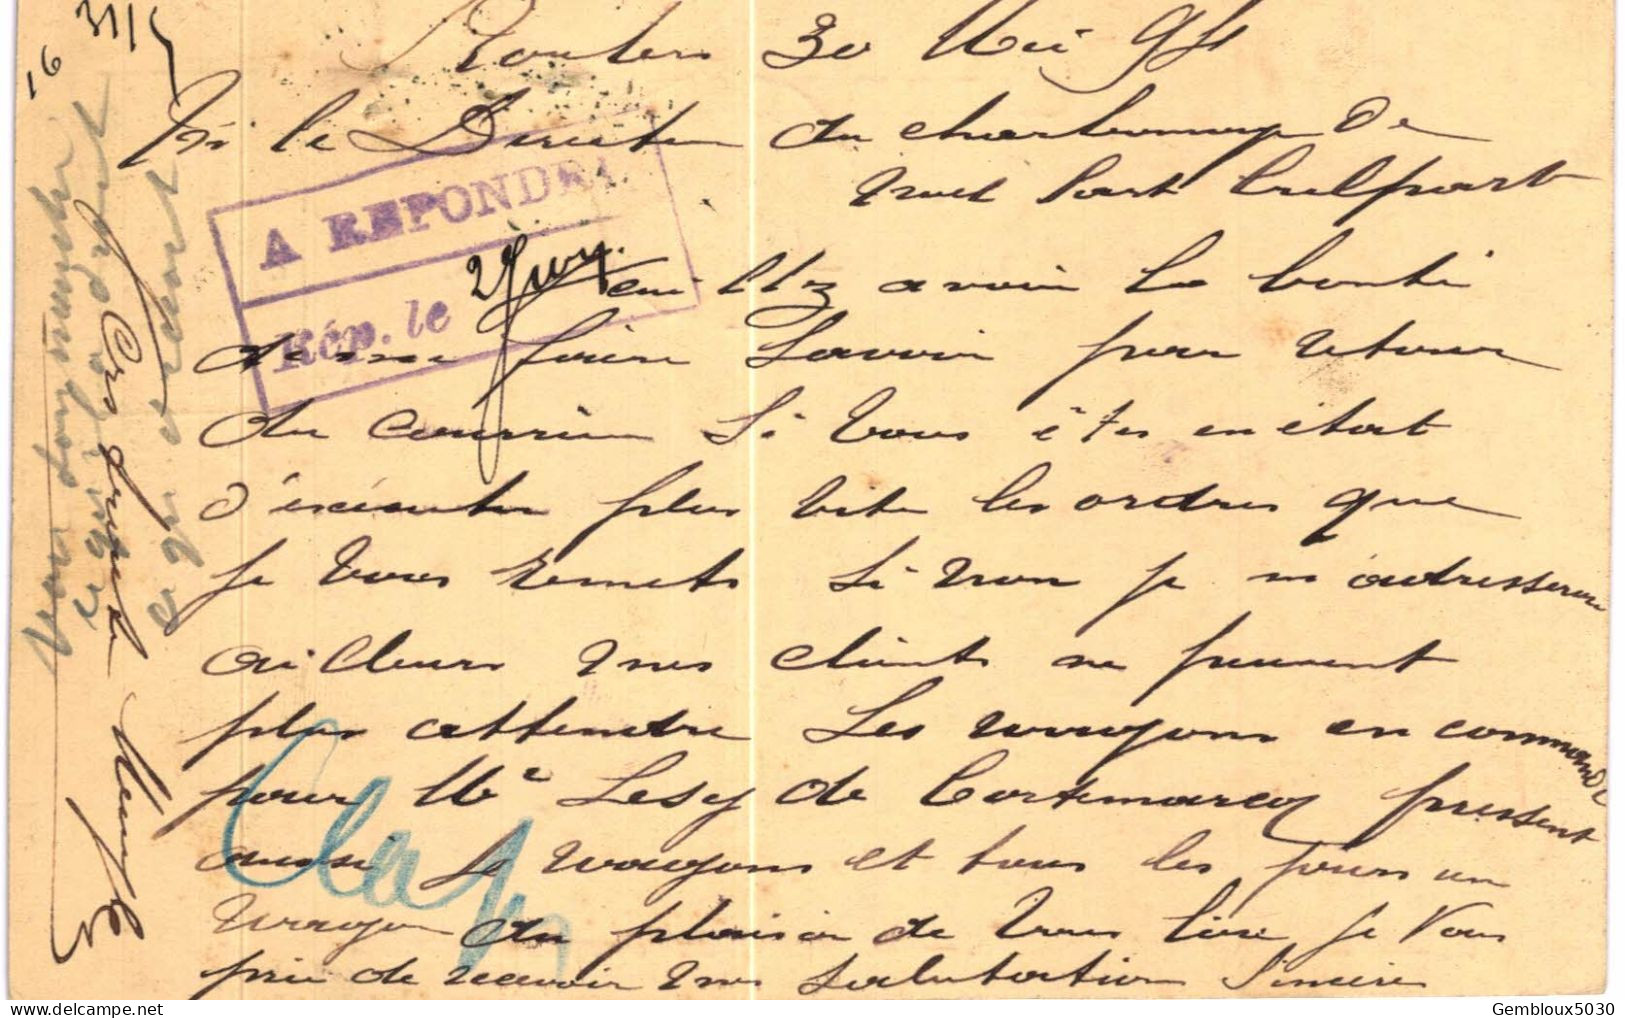 31/5
16
Roulers 30 Mai 94
Mr le Directeur du charbonnage de
Noel Sart Culpart
A REPONDRE
Rép. le 2 Juin
Veuillez avoir la bonté
de me faire savoir par retour
du courrier si vous êtes en état
d'exécuter plus vite les ordres que
je vous remets si non je m'adresserai
ailleurs mes clients ne peuvent
plus attendre Les wagons en commande
pour Mr Lesy de Cortemarcq pressent
aussi wagons et tous les jours un
wagon au plaisir de vous lire je vous
prie de recevoir mes salutation sincères